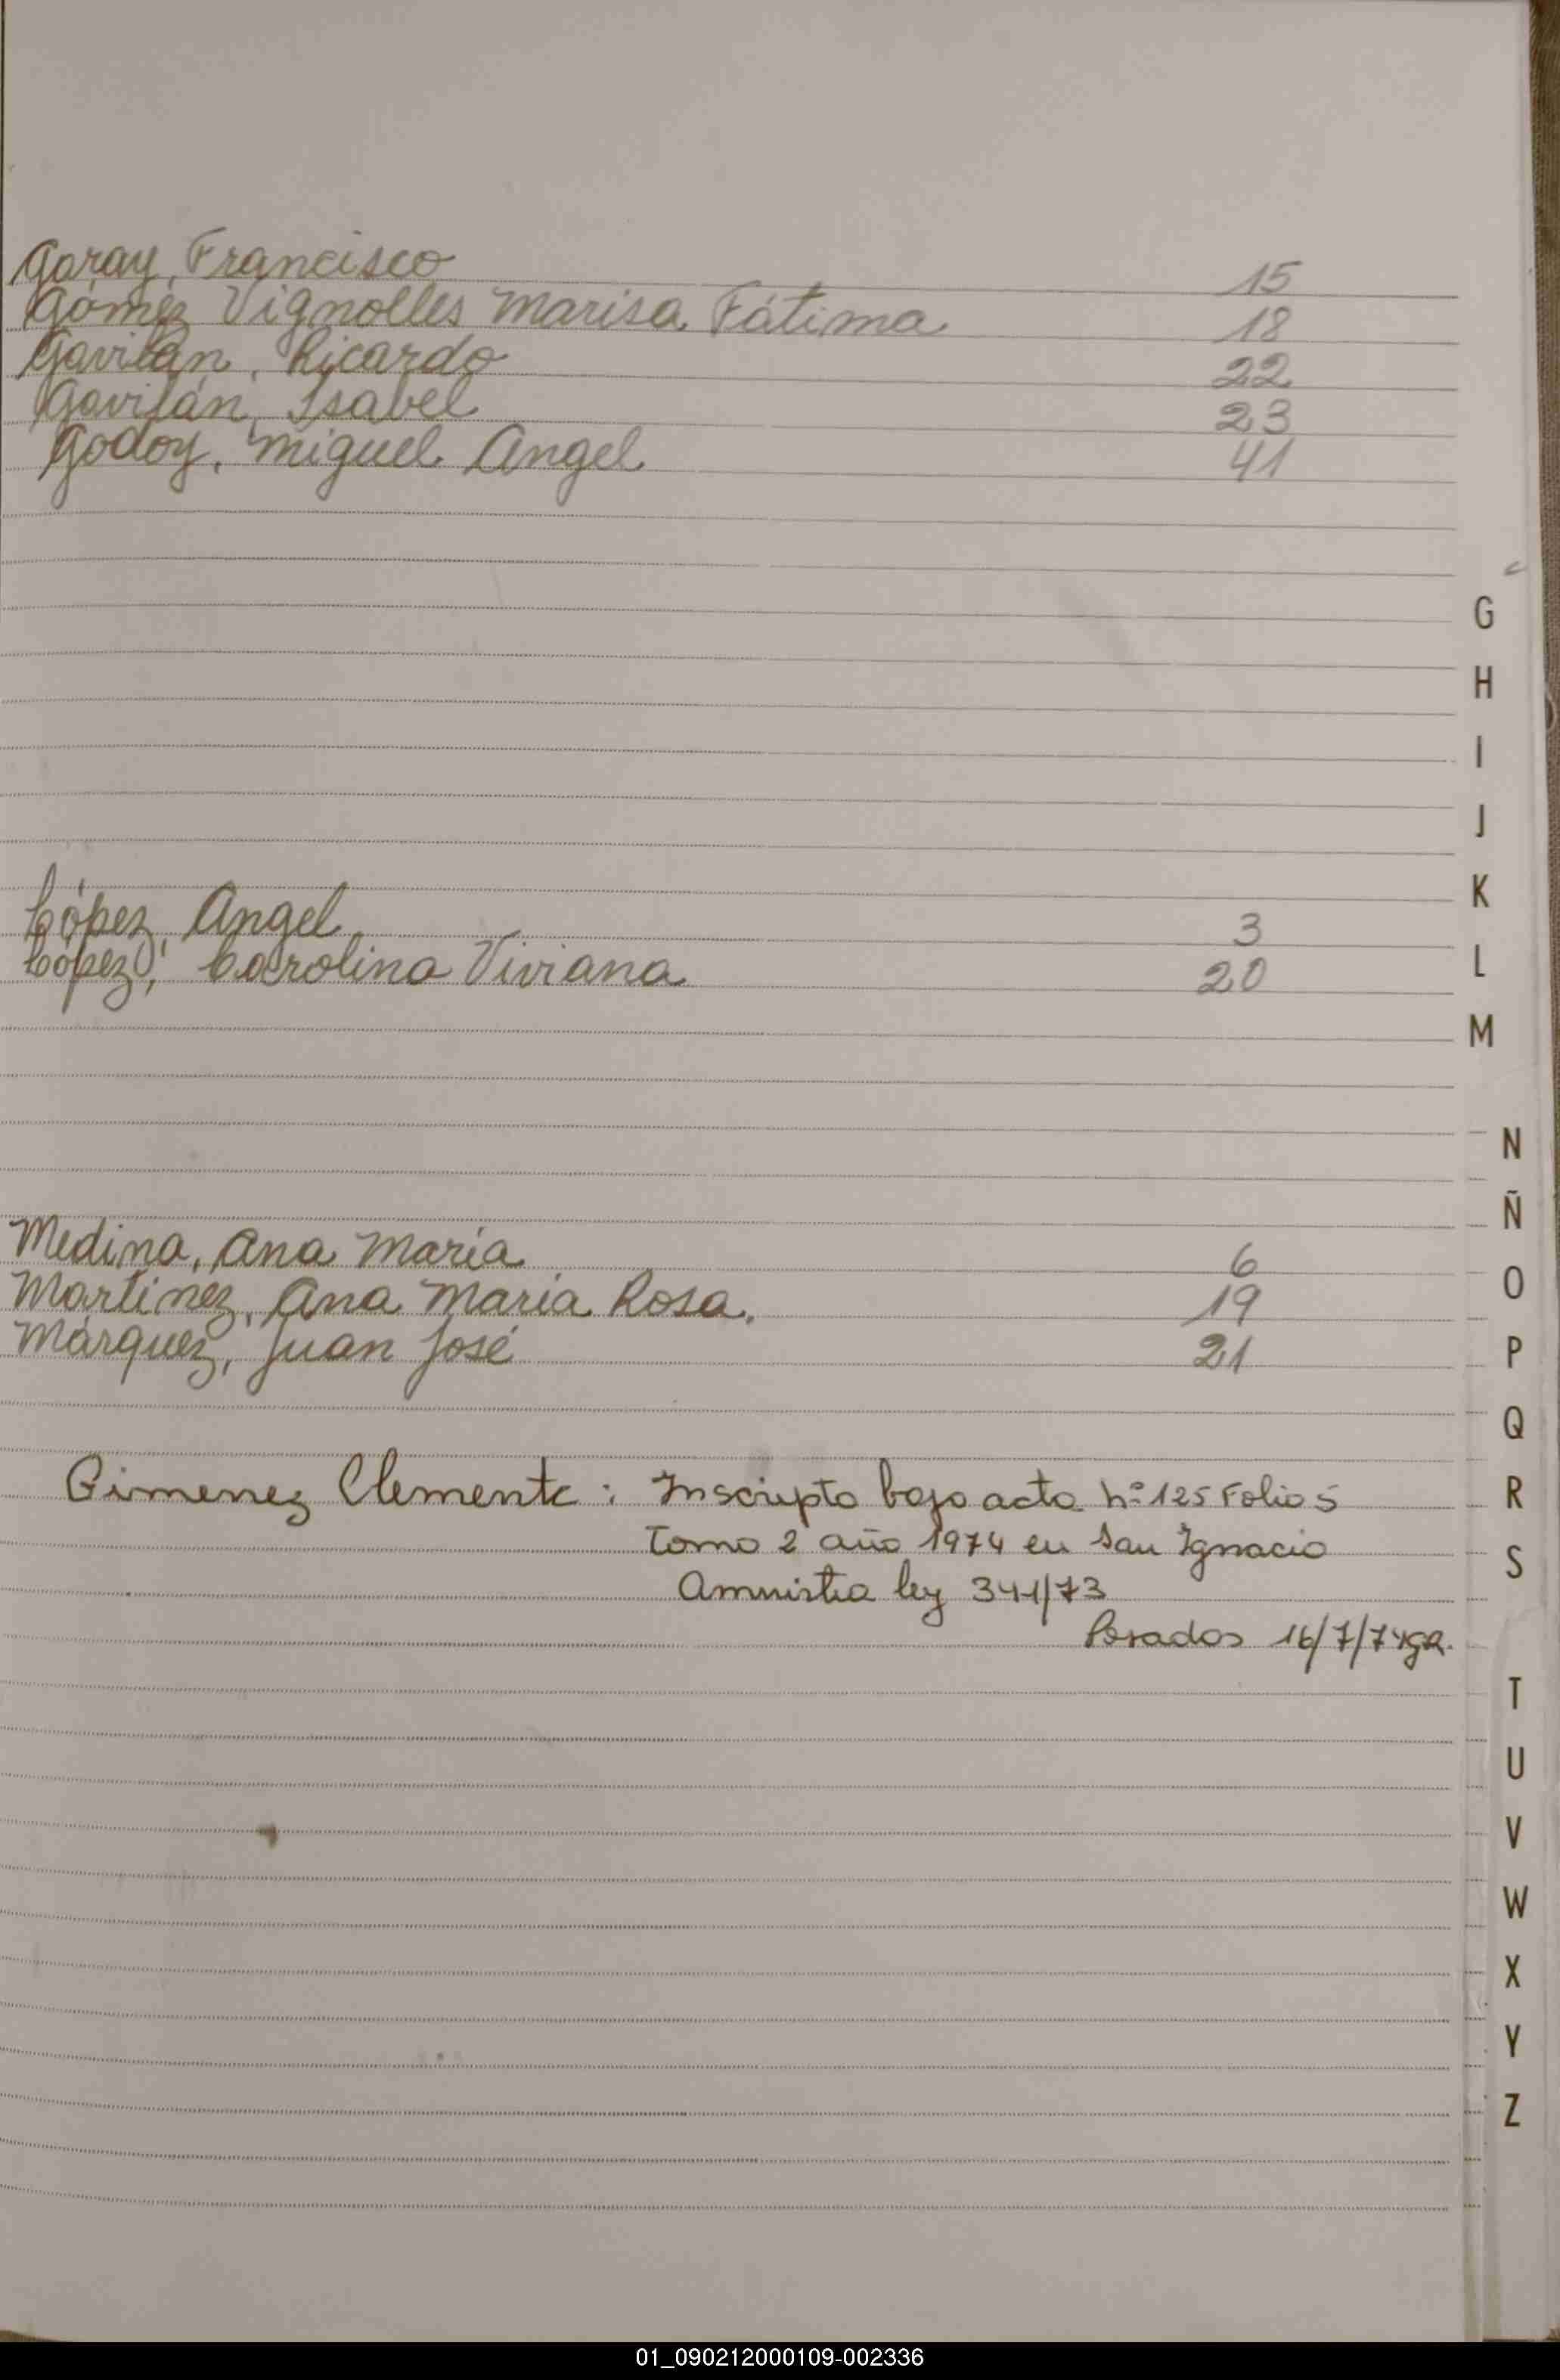 Garay, Francisco 15
Gómez Vignolles Marisa Fátima 18
Gavilán, Ricardo 22
Gavilán, Isabel 23
Godoy, Miguel Angel 41
G
H
I
J
K
López, Angel 3
López, Carolina Viviana 20
L
M
N
Ñ
Medina, Ana María 6
Martínez, Ana María Rosa. 19
Márquez, Juan José 21
O
P
Q
Gimenez Clemente: Inscripto bajo acta Nº 125 Folio 5
R
Tomo 2 año 1974 en San Ignacio
S
Amnistia ley 341/73
Posadas 16/7/74
T
U
V
W
X
Y
Z
01_090212000109-002336